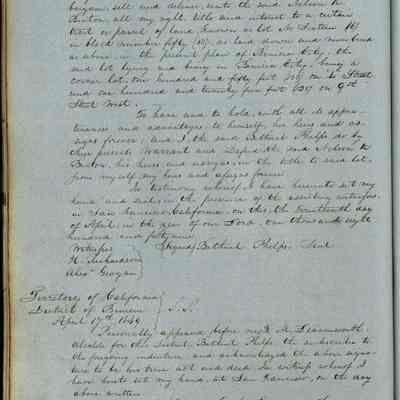 bargain, sell and deliver, unto the said Nelson K.
Benton, all my right, title and interest to a certain
tract or parcel of land known as lot No Sixteen (16)
in block number fifty (50), as laid down and numbered
as above in the present plan of Benicia City, the
said lot lying and being in Benicia City, being a
corner lot, one hundred and fifty feet on Street
and one hundred and twenty five feet 125 on 9th
Street West.
To have and to hold, with all its appur-
tenances and advantages to himself, his heirs and as-
signs forever, and I the said Bethuel Phelps do by
these presents Warrant and Defend the said Nelson K
Benton, his heirs and assigns, in the title to said lot,
from myself my heirs and assigns forever
In testimony whereof I have hereunto set my
hand and seal, in the presence of the ascribing witnesses
in San Francisco California, on this the fourteenth day
of April, in the year of our Lord one thousand eight
hundred and forty nine
Witnesses Signed, Bethuel Phelps. Seal
H. Richardson
Alexr Grogan
Territory of California
District of Benicia S.S.
April 17th 1849
Personally appeared before me, S. M.
Alcalde for this District, Bethuel Phelps, the subscriber to
the foregoing indenture and acknowledged the above signa-
ture to be his true act and deed. In witness whereof I
have hereto set my hand, at San Francisco, on the day
above written.